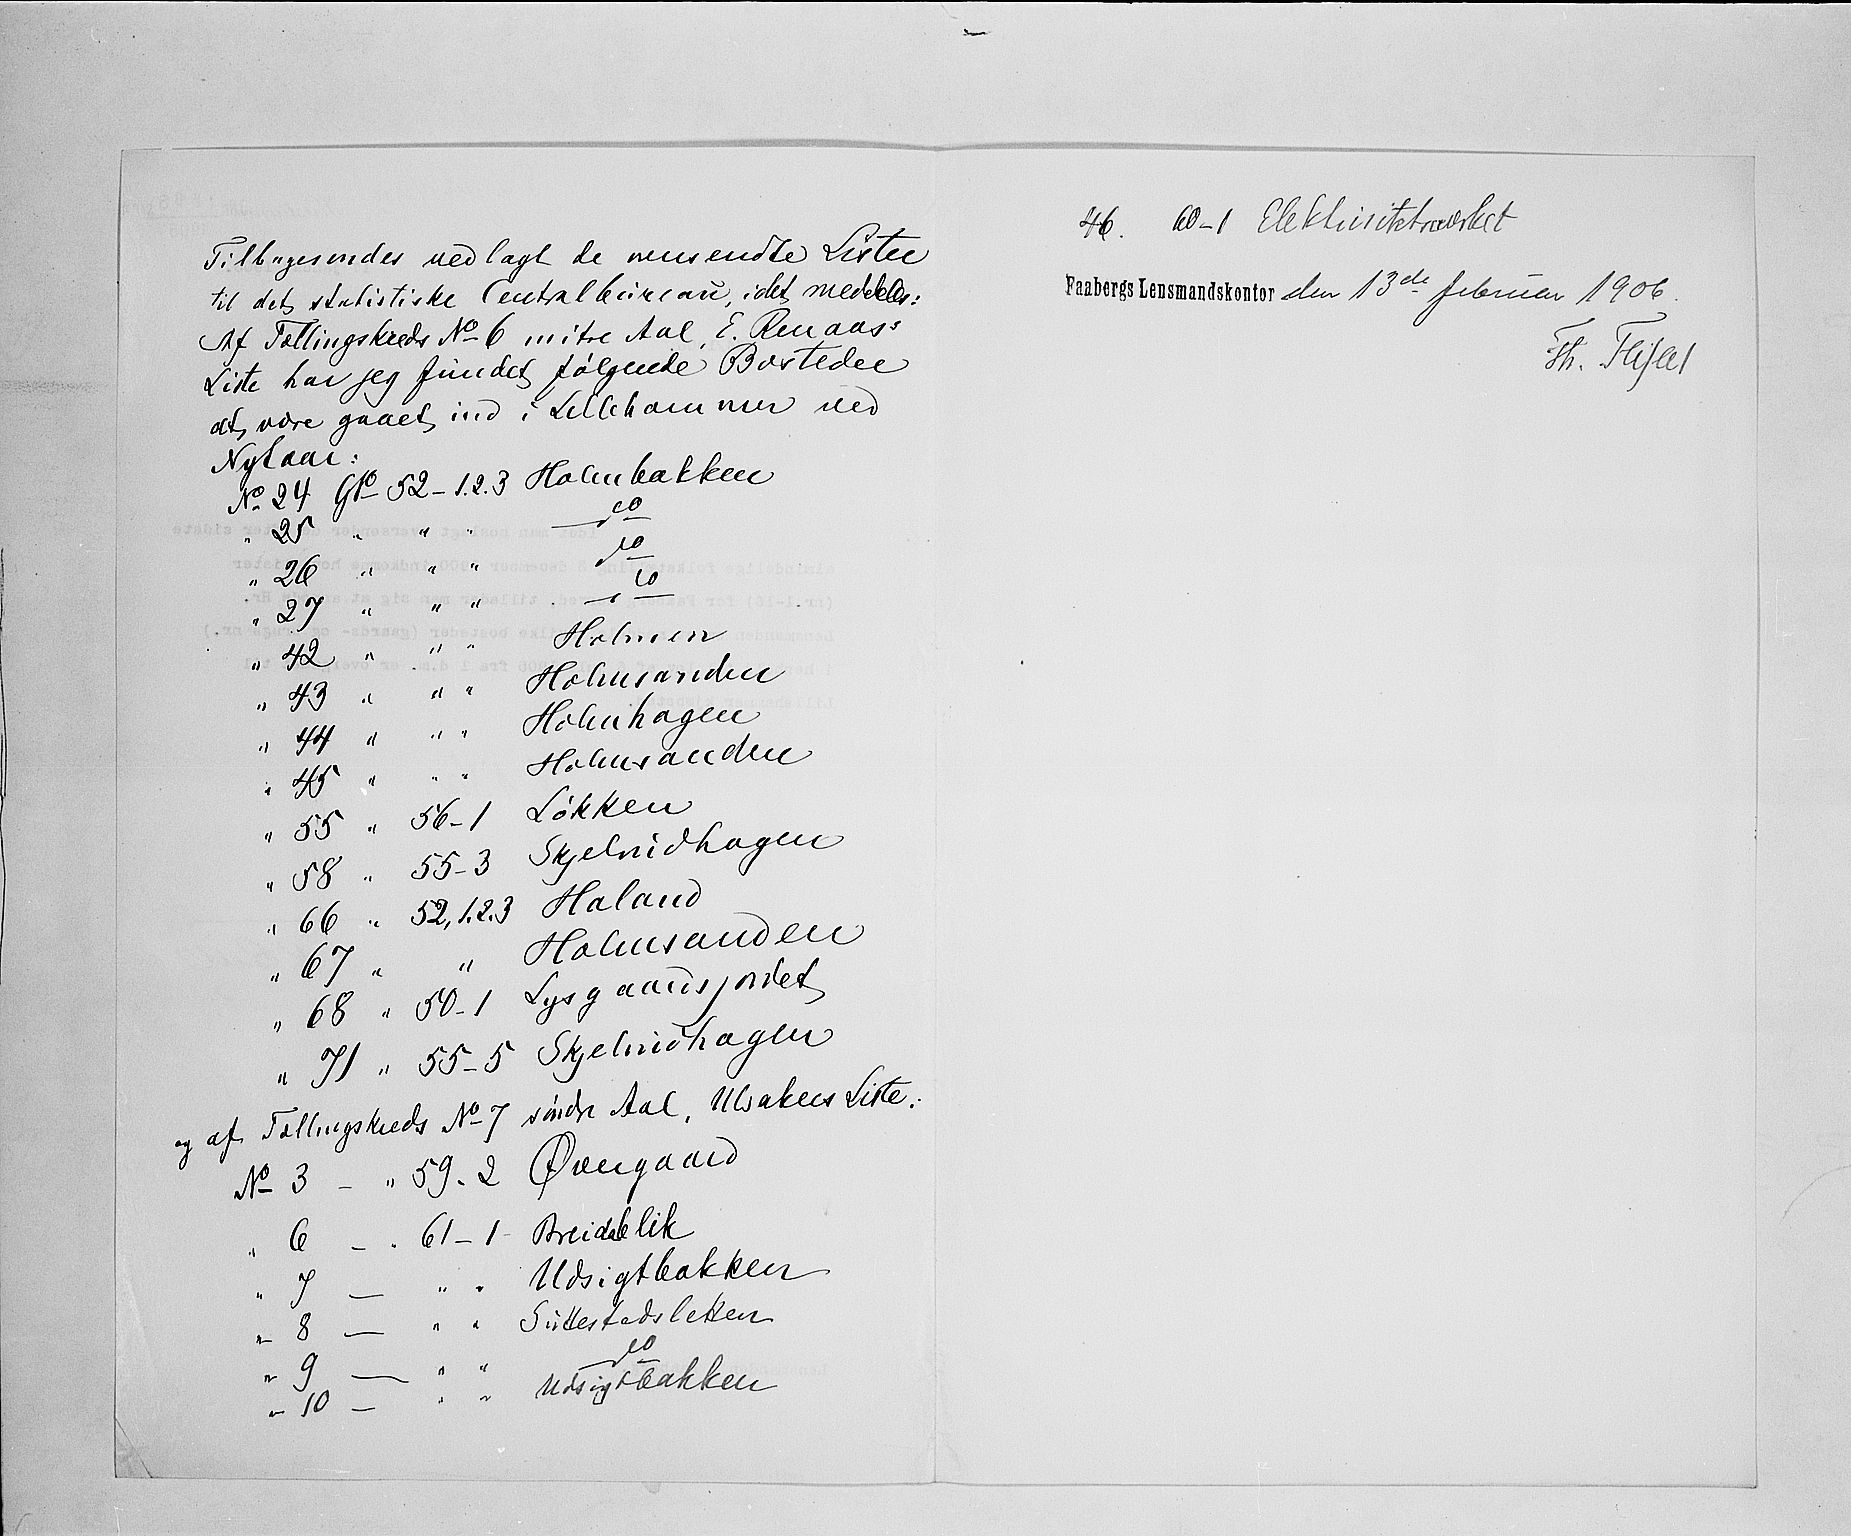 Tilbagesendes vedlagt de oversendte Lister
til det statistiske Centralbureau, idet meddeles:
Af Tællingskreds No 6 nitre Aal, E. Renaas's
Liste har jeg fundet følgende Bosteder
at være gaaet ind i Lillehammer ved
Nytaar:
No 24 Gno 52-1.2.3 Holmbakken
" 25 " " " do
" 26 " " " do
" 27 " " " do
" 42 " " " Holmen
" 43 " " " Holmsanden
" 44 " " " Holmhagen
" 45 " " " Holmsanden
" 55 " 56-1 Løkken
" 58 " 55-3 Skjelvidhagen
" 66 " 52,1.2.3 Haland
" 67 " " Holmsanden
" 68 " 50-1 Lysgaardsjordet
" 71 " 55-5 Skjelvidhagen
og af Tællingskreds No 7 søndre Aal, Ulvakers Liste:
No 3 - " 59-2 Øvergaard
" 6 - " 61-1 Breidablik
" 7 - " " Udsigtbakken
" 8 - " " Suttestadsletten
" 9 - " " do
" 10 - " " Udsigtbakken
46. 60-1 Elektricitetsværket
Faabergs Lensmandskontor den 13de februar 1906.
Th.